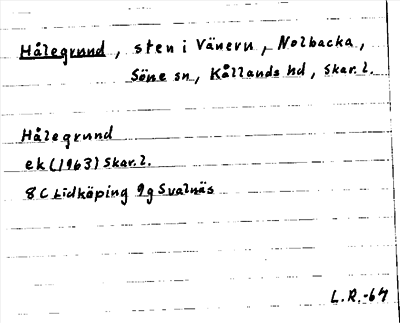 Hålegrund, sten i Vänern, Nolbacka,
Söne sn, Kållands hd, Skar. l.
Hålegrund
ek (1963) Skar. l.
8 C Lidköping 9g Svalnäs
L.R.-64